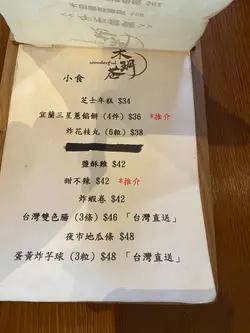 wonderful
小食
芝士年糕 $34
宜蘭三星蔥餡餅 (4件) $36 *推介
炸花枝丸 (6粒) $38
鹽酥雞 $42
甜不辣 $42 *推介
炸蝦卷 $42
台灣雙色腸 (3條) $46 「台灣直送」
夜市地瓜條 $48
蛋黃炸芋球 (3粒) $48 「台灣直送」